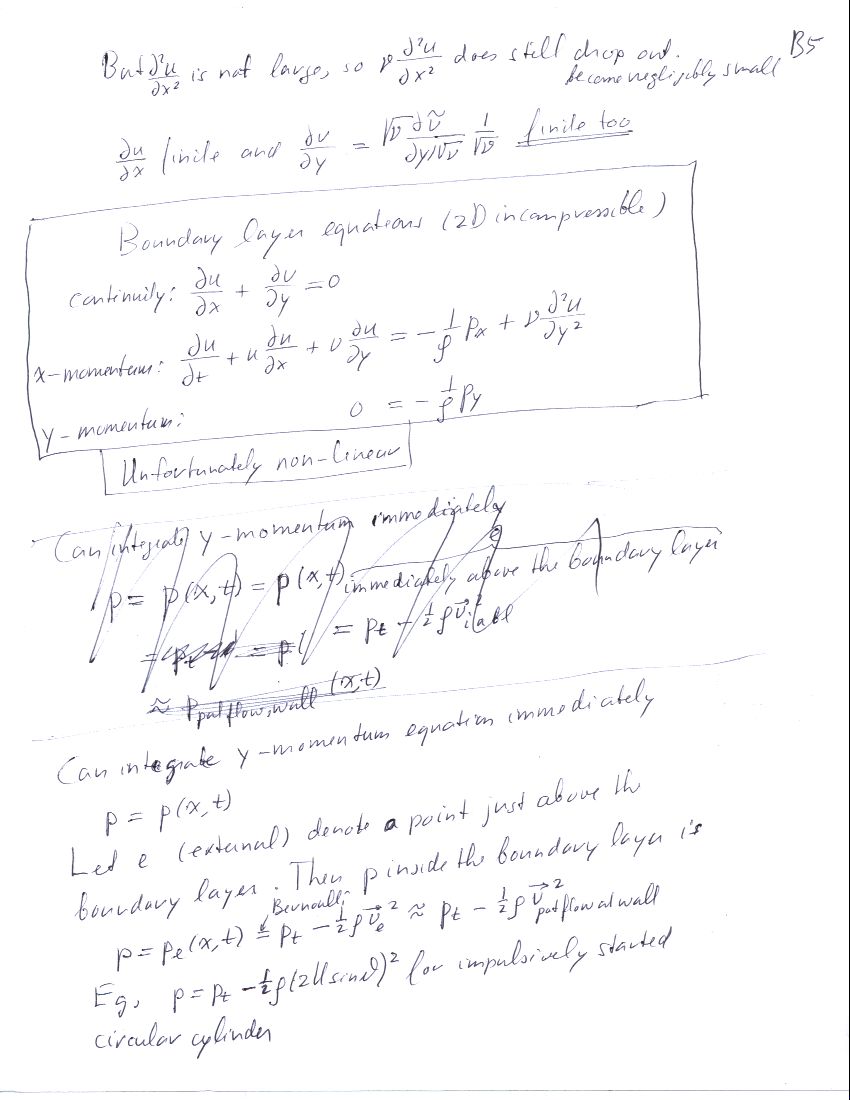 B5
But ∂²u/∂x² is not large, so ν ∂²u/∂x² does still drop out.
become negligibly small
∂u/∂x finite and ∂v/∂y = √ν ∂ṽ / ∂y/√ν 1/√ν finite too
Boundary layer equations (2D incompressible)
Continuity: ∂u/∂x + ∂v/∂y = 0
x-momentum: ∂u/∂t + u ∂u/∂x + v ∂u/∂y = - 1/ρ px + ν ∂²u/∂y²
y-momentum: 0 = - 1/ρ py
Unfortunately non-linear
Can integrate y-momentum immediately
p = p(x,t) = p(x,t) immediately above the boundary layer
= pt - ½ρv⃗²
≈ p potflow, wall (x,t)
Can integrate y-momentum equation immediately
p = p(x,t)
Let e (external) denote a point just above the
boundary layer. Then p inside the boundary layer is
Bernoulli
p = pe(x,t) = pt - ½ρv⃗e² ≈ pt - ½ρv⃗² potflow at wall
Eg, p = pt - ½ρ(2U sin ϑ)² for impulsively started
circular cylinder